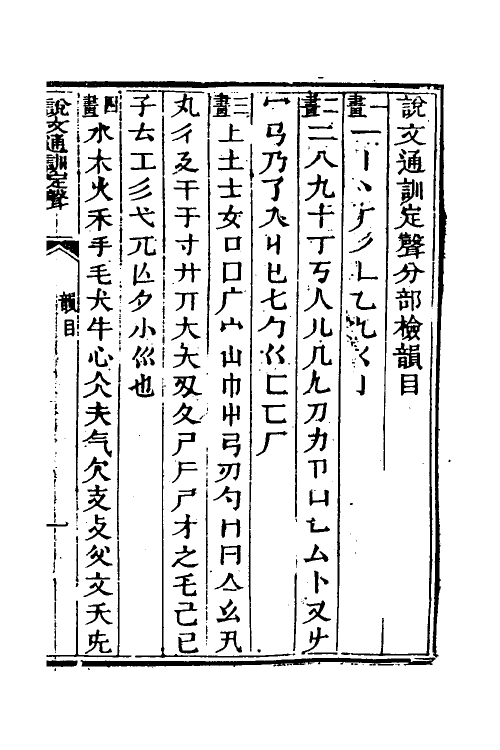 說文通訓定聲分部檢韻目
一畫 一丨丶𠂆丿乚乙乁𡿨亅
二畫 二八九十丁丂人儿几𠘧刀力卩凵乚厶卜又𠂇
冖𢎘乃了入丩匕七勹巜匚匸厂
三畫 上土士女口囗广宀山巾屮弓刃勺冂冃亼幺卂
丸彳夊干于寸廾丌大夨㕛久尸𠂆尸才之乇己巳
子𠫓工彡弋兀亾夕小巛也
四畫 水木火禾手毛犬牛心仌夫气欠支攴父文夭旡
說文通訓定聲
韻目
一